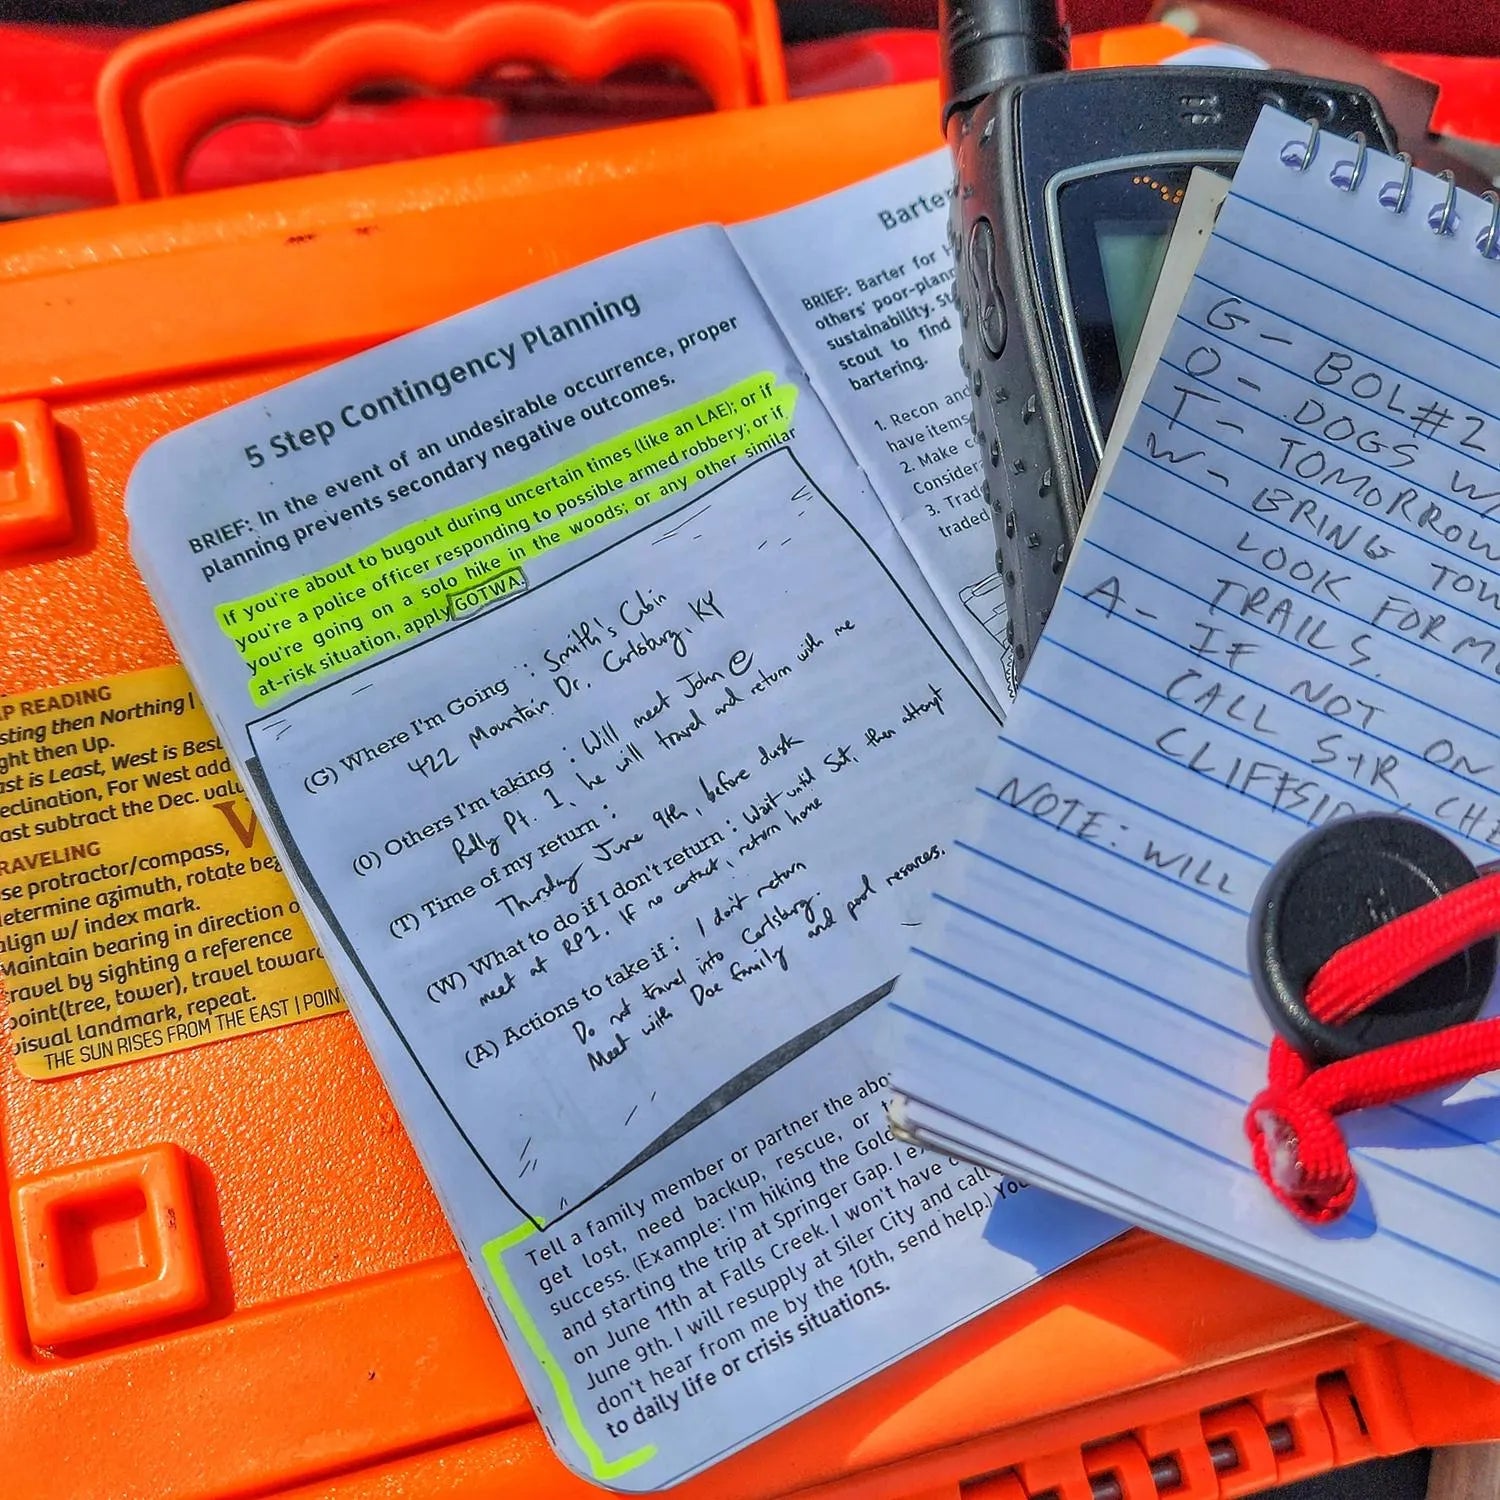 5 Step Contingency Planning
BRIEF: In the event of an undesirable occurrence, proper
planning prevents secondary negative outcomes.
If you're about to bugout during uncertain times (like an LAE); or if
you're a police officer responding to possible armed robbery; or if
you're going on a solo hike in the woods; or any other similar
at-risk situation, apply GOTWA.
(G) Where I'm Going : Smith's Cabin
422 Mountain Dr. Carlsburg, KY
(O) Others I'm taking : Will meet John @
Rally Pt. 1, he will travel and return with me
(T) Time of my return :
Thursday June 9th, before dusk
(W) What to do if I don't return : Wait until Sat, then attempt
meet at RP1. If no contact, return home
(A) Actions to take if : I don't return
Do not travel into Carlsburg.
Meet with Doe family and pool resources.
Tell a family member or partner the
get lost, need backup, rescue, or
success. (Example: I'm hiking the
and starting the trip at Springer Gap. I
on June 11th at Falls Creek. I won't have
June 9th. I will resupply at Siler City and call
don't hear from me by the 10th, send help.)
to daily life or crisis situations.
BRIEF: Barter for
others' poor-
sustainability.
scout to find
bartering.
1. Recon and
have items
2. Make
3.
traded
G - BOL#2
O - DOGS
T - TOMORROW
W - BRING
LOOK FOR
TRAILS.
A - IF NOT ON
CALL S+R,
NOTE: WILL
READING
then Northing |
then Up.
is Least, West is Best
For West add
subtract the Dec.
protractor/compass,
determine azimuth, rotate
align w/ index mark.
Maintain bearing in direction
travel by sighting a reference
point(tree, tower), travel
visual landmark, repeat.
THE SUN RISES FROM THE EAST |